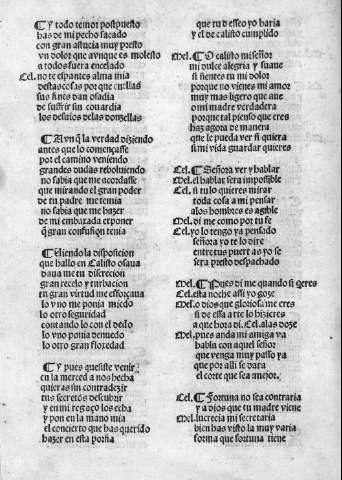 ¶ Y todo temor postpuesto
has de mi pecho sacado
con gran astucia muy presto
vn dolor que avnque es molesto
a todos fuera encelado
Cel. no te espantes alma mia
destas cosas por que en ellas
sus fines dan osadia
de sufrir sin couardia
los desuios delas donzellas
¶ Avnq̃ la verdad diziendo
antes que lo començasse
por el camino veniendo
grandes dudas reboluiendo
no sabia que me acordasse
que mirando el gran poder
de tu padre me temia
no sabia que me hazer
de mi embarada exponer
q̃ gran confusion tenia
¶ El iendo la disposicion
que hallo en Calisto osaua
daua me tu discrecion
gran recelo y turbacion
tu gran virtud me esforçaua
lo vno me ponia miedo
lo otro seguridad
contando lo con el dedo
lo vno ponia denuedo
lo otro gran floxedad.
¶ Y pues quesiste venir
en la merced a nos hecha
quieras sin contradezir
tus secretos descubrir
y en mi regaço los echa
y pon en la mano mia
el concierto que has querido
hazer en esta porfia
que tu desseo yo haria
y el de calisto cumplido
Mel. ¶ O calisto mi señor
mi dulce alegria y suaue
si sientes tu mi dolor
porque no vienes mi amor
muy mas ligero que aue
o mi madre verdadera
porque tal pienso que eres
haz agora de manera
que le pueda ver si quiera
si mi vida guardar quieres
Cel. ¶ Señora ver y hablar
Mel. el hablar sera impossible
Cel. si tu lo quieres mirar
toda cosa a mi pensar
alos hombres es agible
Mel. di me como por tu fe
Cel. yo lo tengo ya pensado
señora yo te lo dire
entre tus puertas yo se
sera presto despachado
Mel. ¶ Pues di me quando si q̃eres
Cel. esta noche assi yo goze
Mel. o dios que gloriosa me eres
si de essa arte lo hizieres
a que hora di. Cel. alas doze
Mel. pues anda mi amiga va
habla con aquel señor
que venga muy passo ya
que por alli se dara
el corte que sea mejor.
Cel. ¶ Fortuna no sea contraria
y a dios que tu madre viene
Mel. lucrecia mi secretaria
bien has visto la muy varia
forma que fortuna tiene